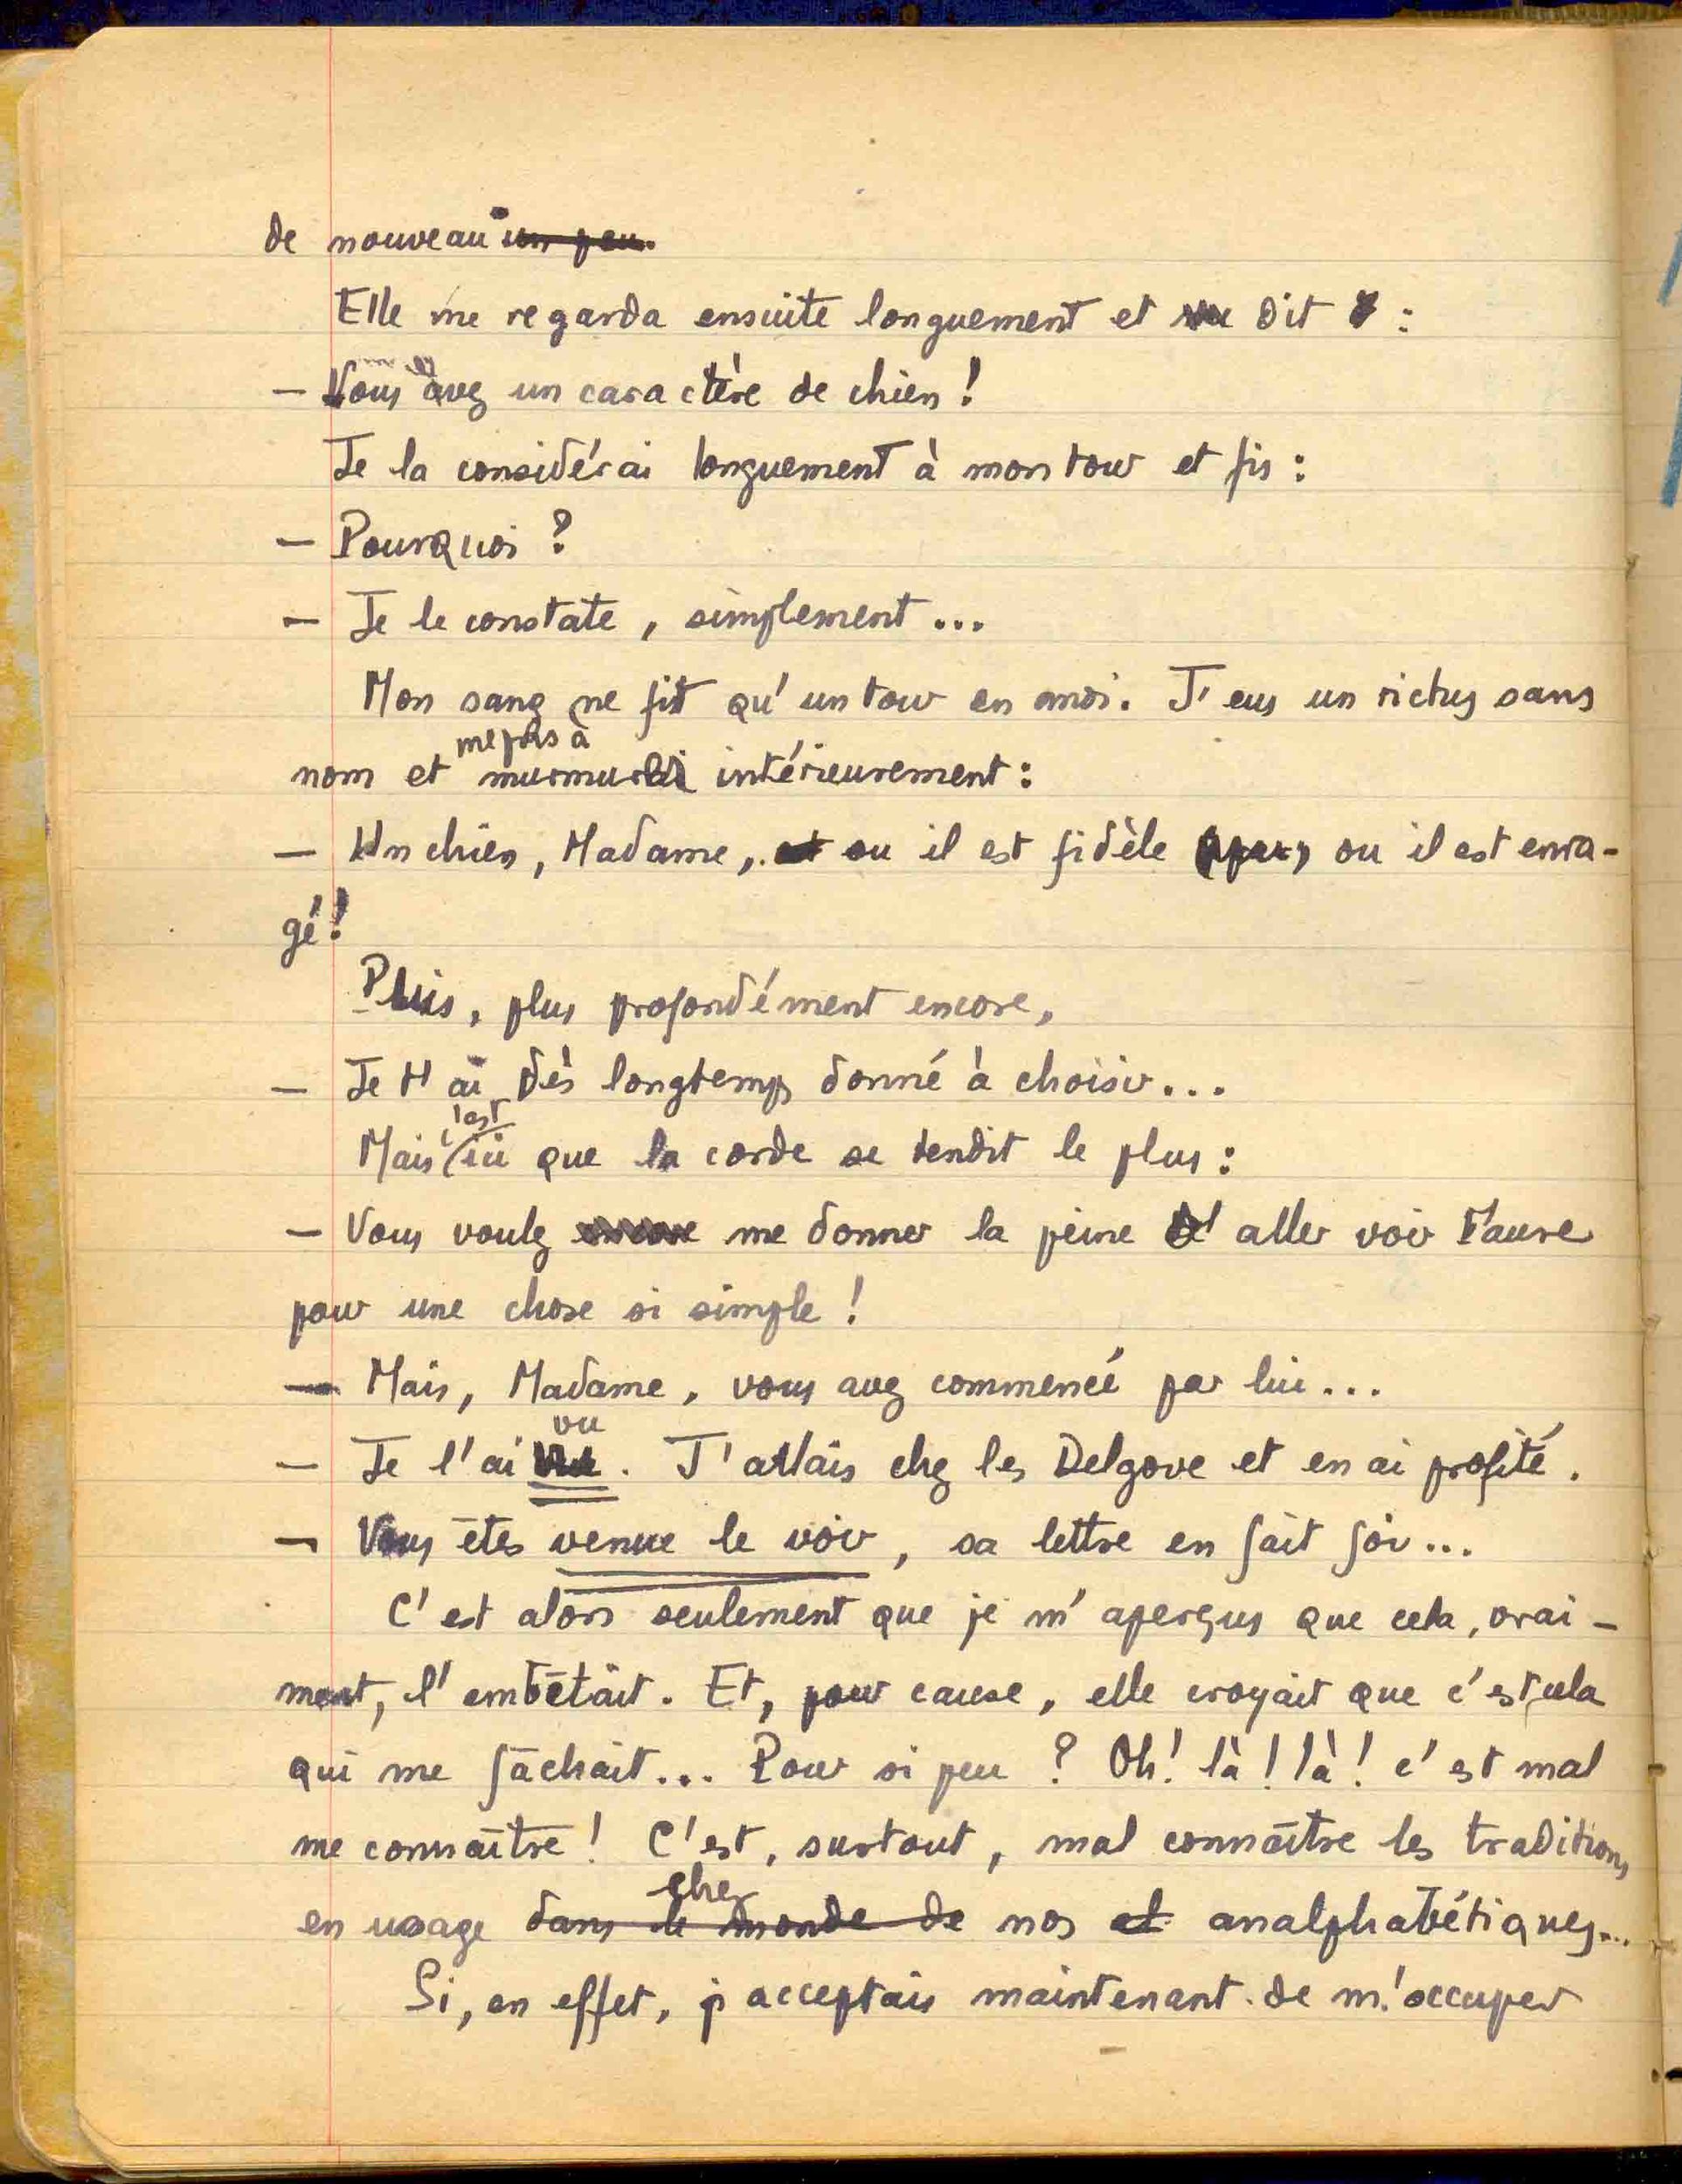 de nouveau un peu.
Elle me regarda ensuite longuement et dit :
— Vous avez un caractère de chien !
Je la considérai longuement à mon tour et fis :
— Pourquoi ?
— Je le constate, simplement...
Mon sang ne fit qu'un tour en moi. J'eus un rictus sans
me pris à
nom et murmurer intérieurement :
— Un chien, Madame, ou il est fidèle ou il est enra-
gé !
Puis, plus profondément encore,
— Je t'ai dès longtemps donné à choisir...
c'est
Mais ici que la corde se tendit le plus :
— Vous voulez encore me donner la peine d'aller voir Faure
pour une chose si simple !
— Mais, Madame, vous avez commencé par lui...
vu
— Je l'ai vu. J'allais chez les Delgove et en ai profité.
— Vous êtes venue le voir, sa lettre en fait foi...
C'est alors seulement que je m'aperçus que cela, vrai-
ment, l'embêtait. Et, pour cause, elle croyait que c'est cela
qui me fâchait... Pour si peu ? Oh ! là ! là ! c'est mal
me connaître ! C'est, surtout, mal connaître les traditions
chez
en usage dans le monde de nos al analphabétiques...
Si, en effet, j'acceptais maintenant de m'occuper